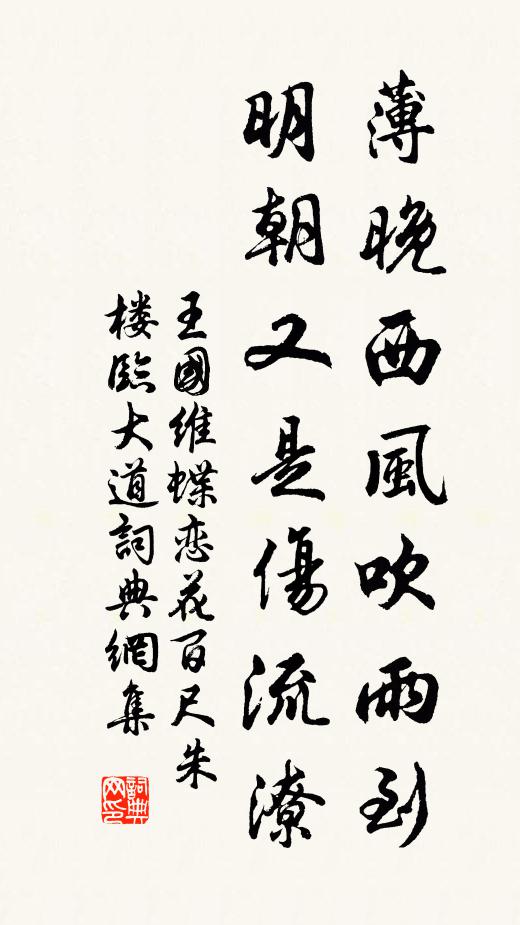 薄晚西風吹雨到
明朝又是傷流潦
王國維蝶恋花百尺朱
楼臨大道詞典網集
詞典
网印